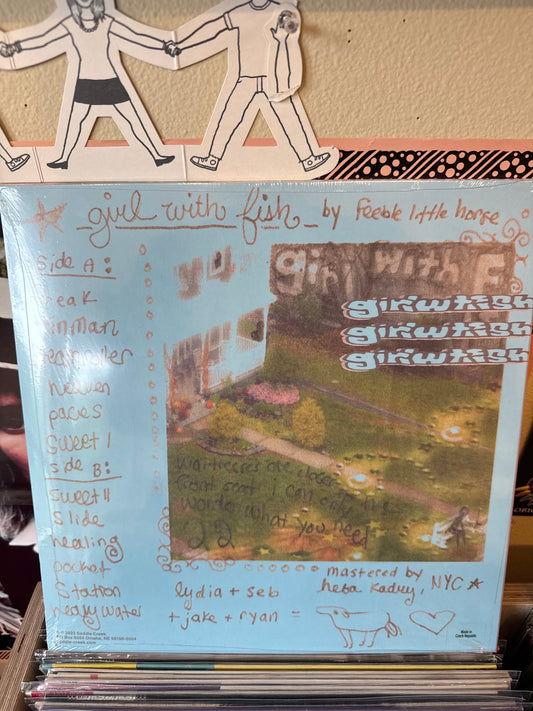 girl with fish by feeble little horse
Side A:
freak
tin man
steamroller
heaven
paces
sweet 1
side B:
sweet 11
slide
healing
pocket
Station
heavy water
girl with F
girlwfish
girlwfish
girlwfish
waitresses are closer
front seat I can
what you need
22
mastered by
heba kadry, NYC
lydia + seb
+ jake + ryan =
© 2023 Saddle Creek
PO Box 8554 Omaha, NE 68108-0554
saddle-creek.com
Made in
Czech Republic